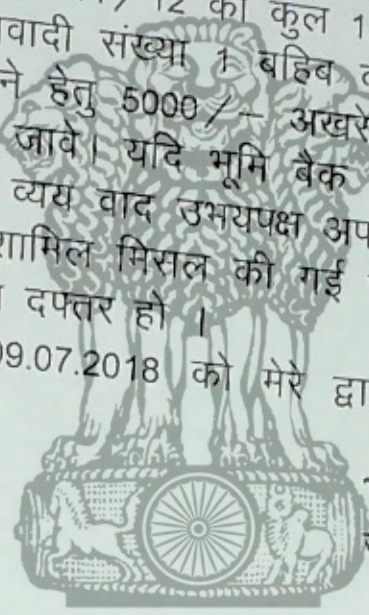 12 का कुल 1
वादी संख्या 1 बहिब
ने हेतु 5000/- अखरे
जावे। यदि भूमि बैक
व्यय वाद उभयपक्ष अप
शामिल मिसल की गई
दफ्तर हो ।
09.07.2018 को मेरे द्वा